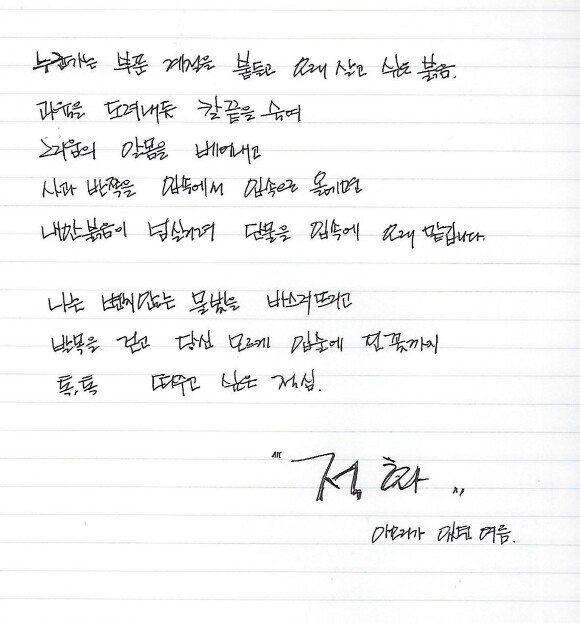 누군가는 부푼 계절을 붙들고 오래 살고 싶은 붉음.
과육을 도려내듯 칼끝을 숨여
그리움의 알몸을 베어내고
사과 반쪽을 입속에서 입속으로 옮기면
내안 붉음이 넘실거려 단물을 입속에 오래 맡깁니다.
나는 변치않는 물빛을 바스러뜨리고
발목을 걷고 당신 모르게 입술에 핀 꽃까지
톡, 톡 띄우고 싶은 정심.
" 점화 "
이 있던 여름.